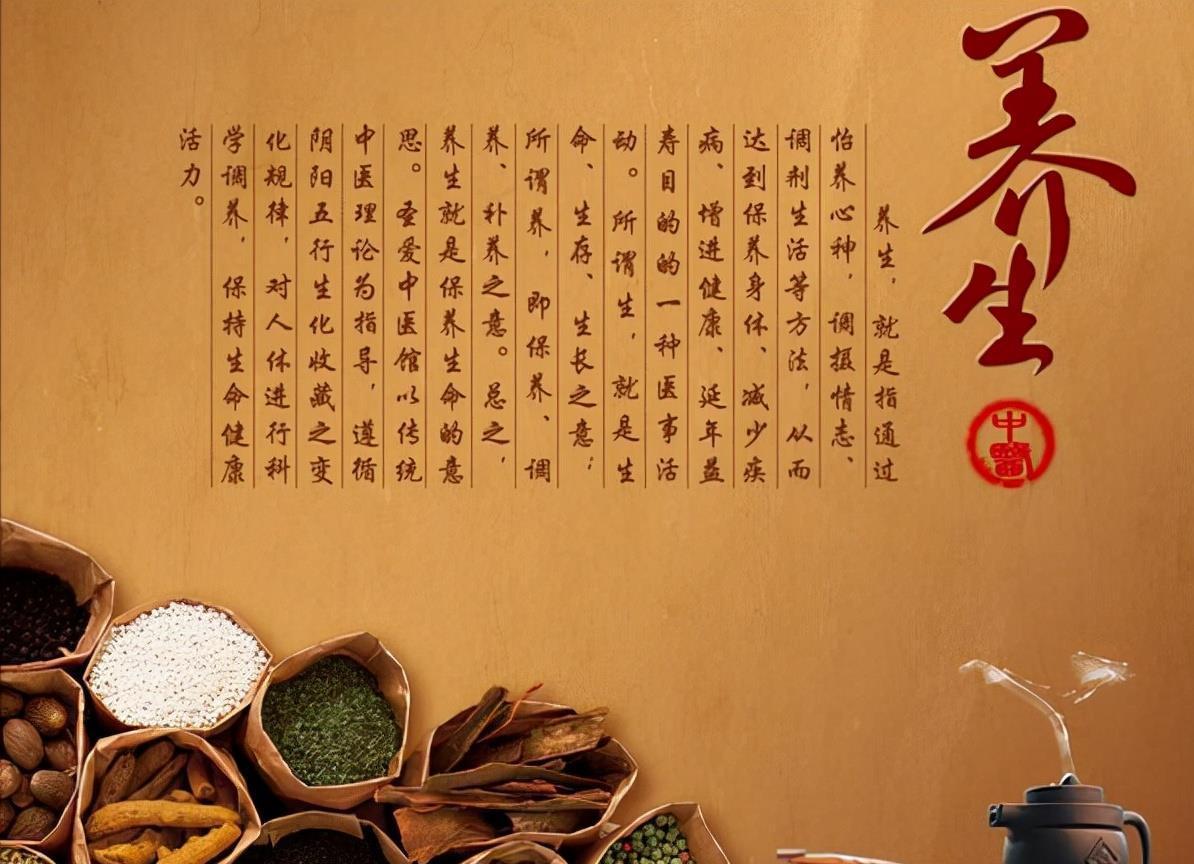 养生
中醫
养生,就是指通过
怡养心神,调摄情志、
调剂生活等方法,从而
达到保养身体、减少疾
病、增进健康、延年益
寿目的的一种医事活
动。所谓生,就是生
命、生存、生长之意;
所谓养,即保养、调
养、补养之意。总之,
养生就是保养生命的意
思。圣爱中医馆以传统
中医理论为指导,遵循
阴阳五行生化收藏之变
化规律,对人体进行科
学调养,保持生命健康
活力。